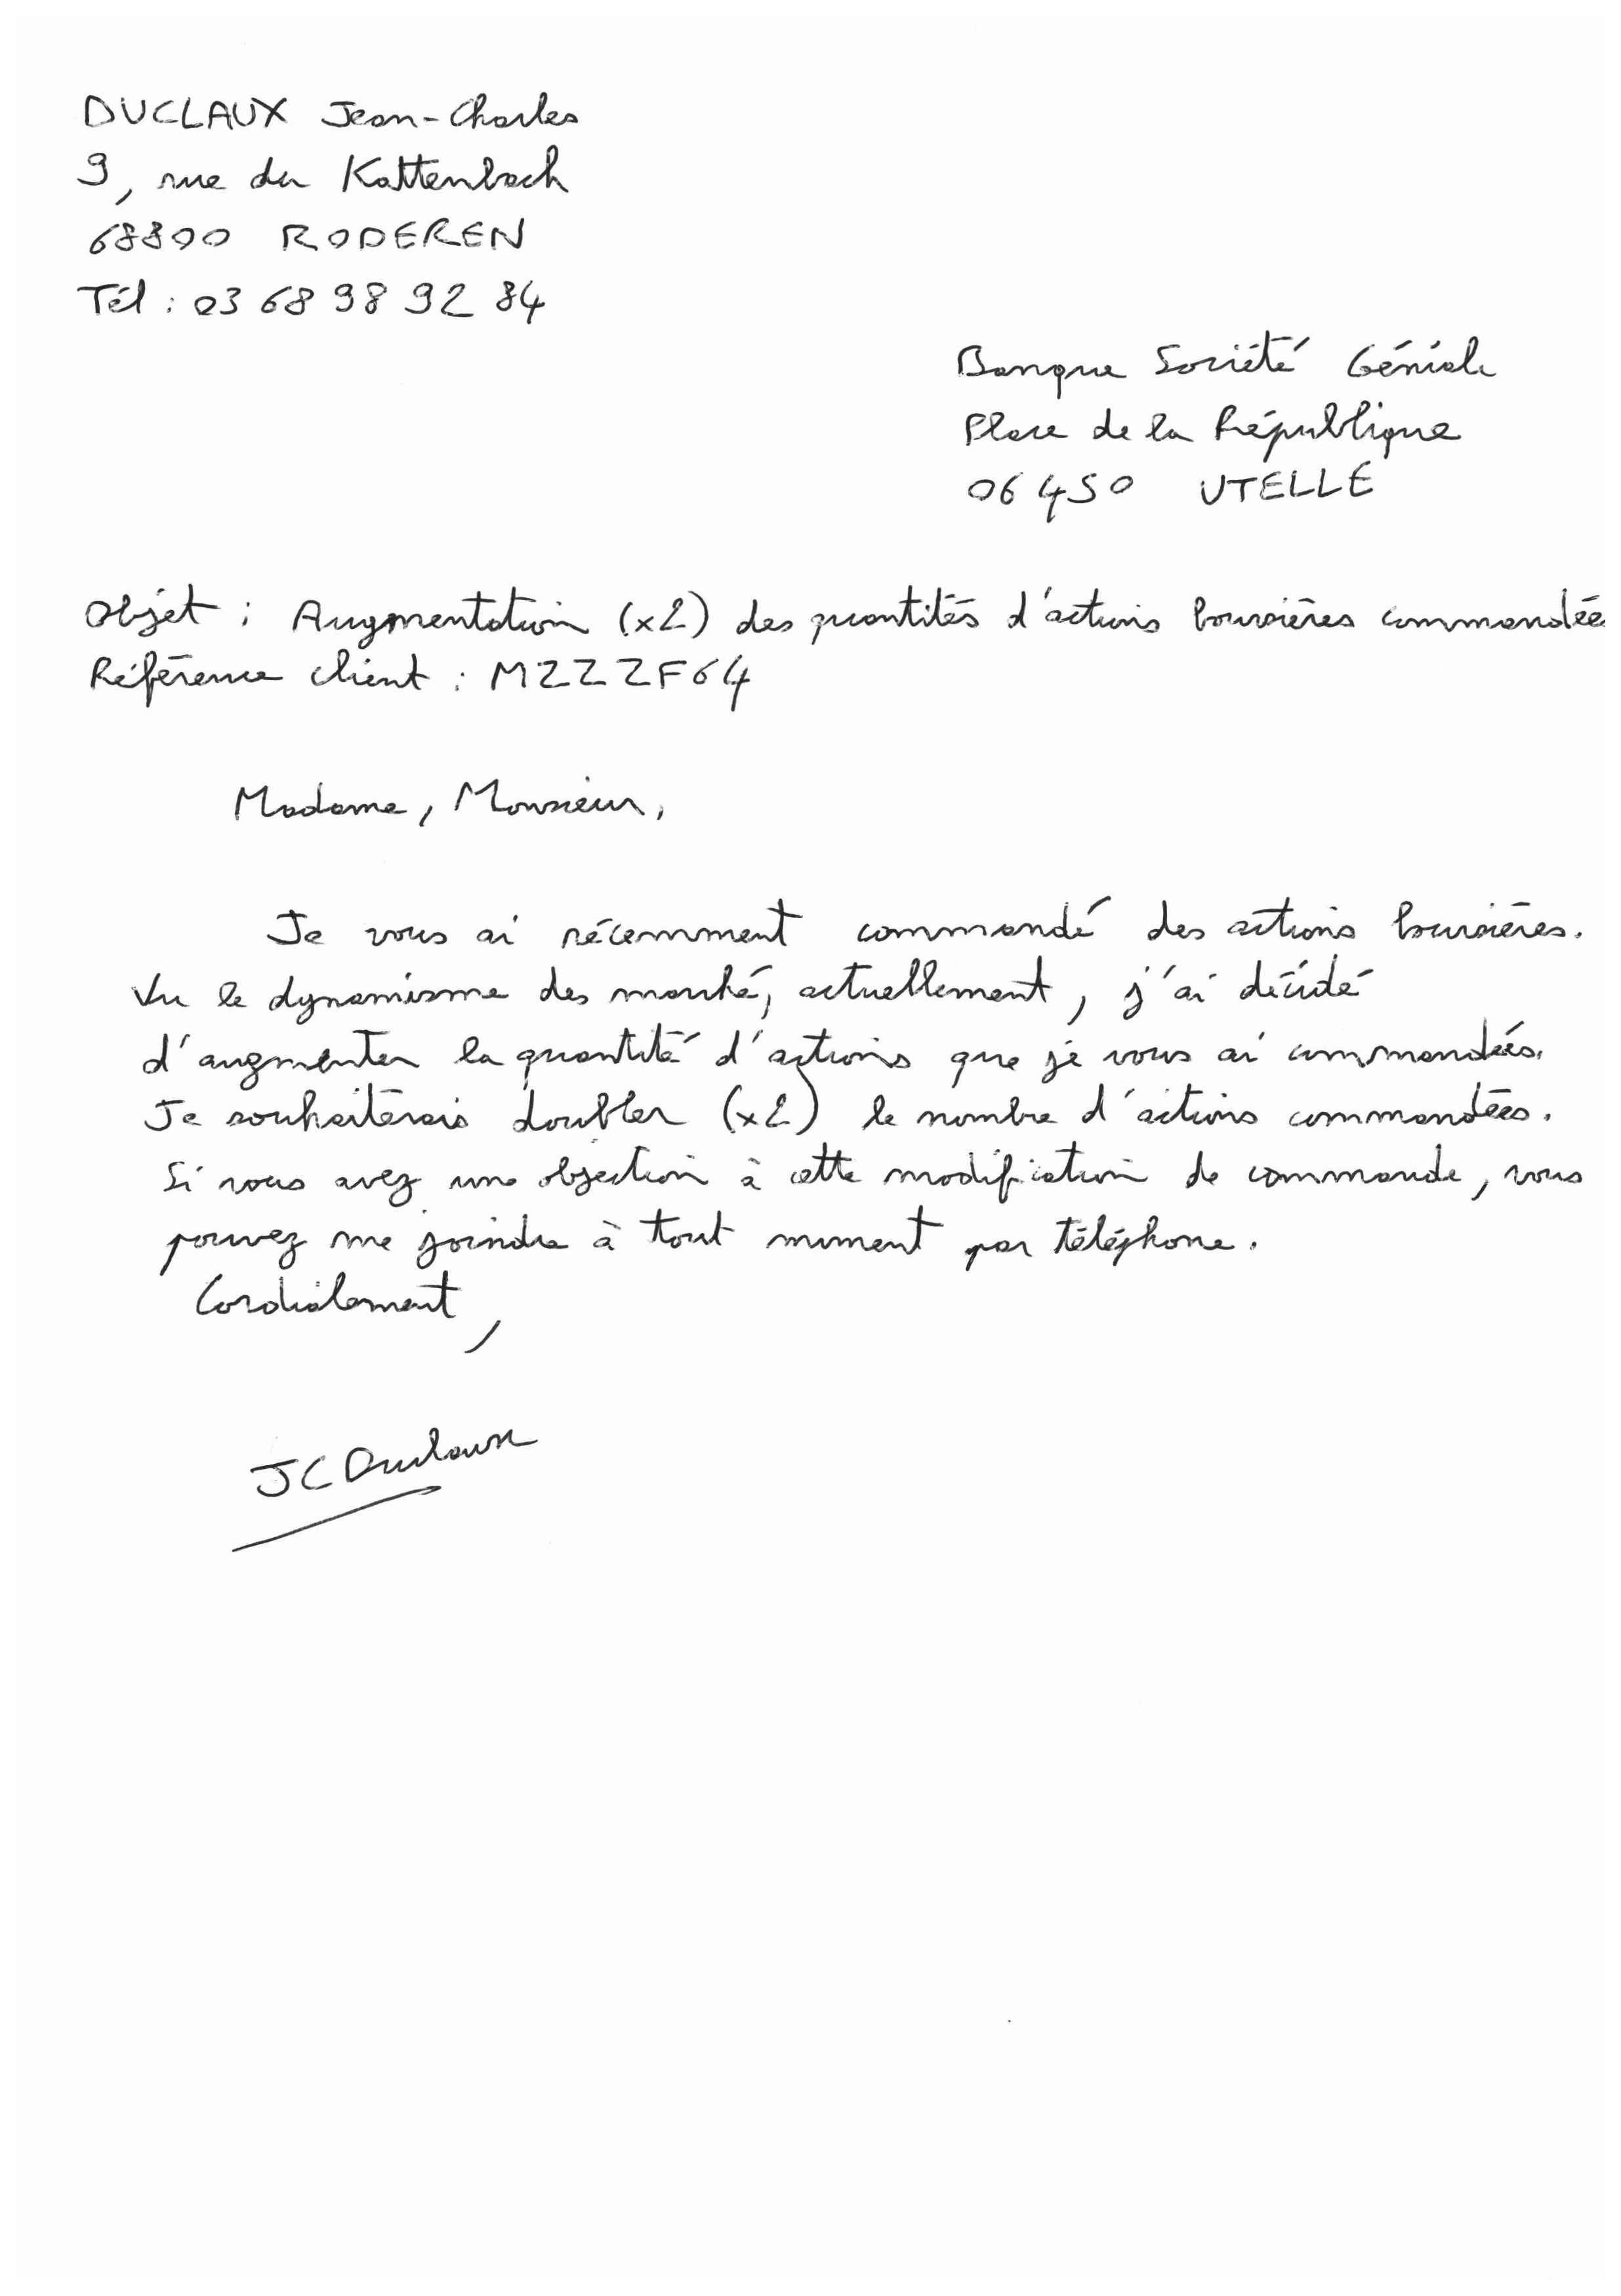 DUCLAUX Jean-Charles
9, rue du Kattenbach
68800 RODEREN
Tél : 03 68 98 92 84
Banque Société Géniale
Place de la République
06450 UTELLE
Objet : Augmentation (x2) des quantités d'actions boursières commandées
Référence client : MZZZF64
Madame, Monsieur,
Je vous ai récemment commandé des actions boursières.
Vu le dynamisme des marché, actuellement, j'ai décidé
d'augmenter la quantité d'actions que je vous ai commandées.
Je souhaiterais doubler (x2) le nombre d'actions commandées.
Si vous avez une objection à cette modification de commande, vous
pouvez me joindre à tout moment par téléphone.
Cordialement,
JC Duclaux